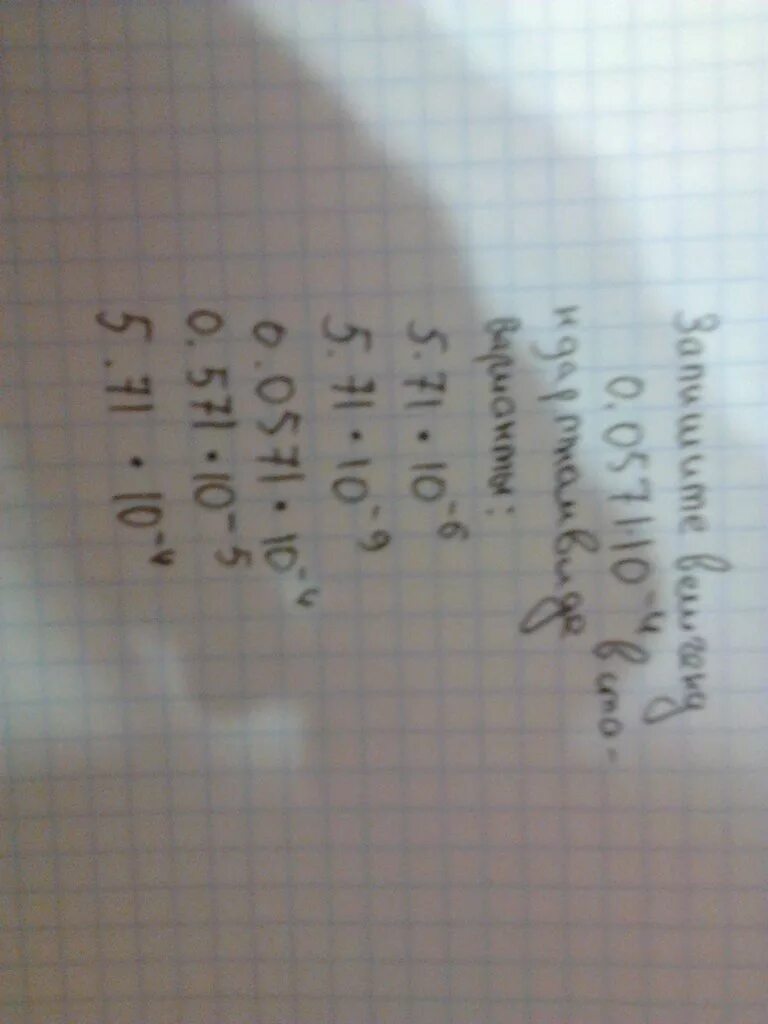 Запишите величину
0.0571·10⁻⁴ в ста-
ндартном виде
варианты:
5.71 · 10⁻⁶
5.71 · 10⁻⁹
0.0571 · 10⁻⁴
0.571 · 10⁻⁵
5.71 · 10⁻⁴